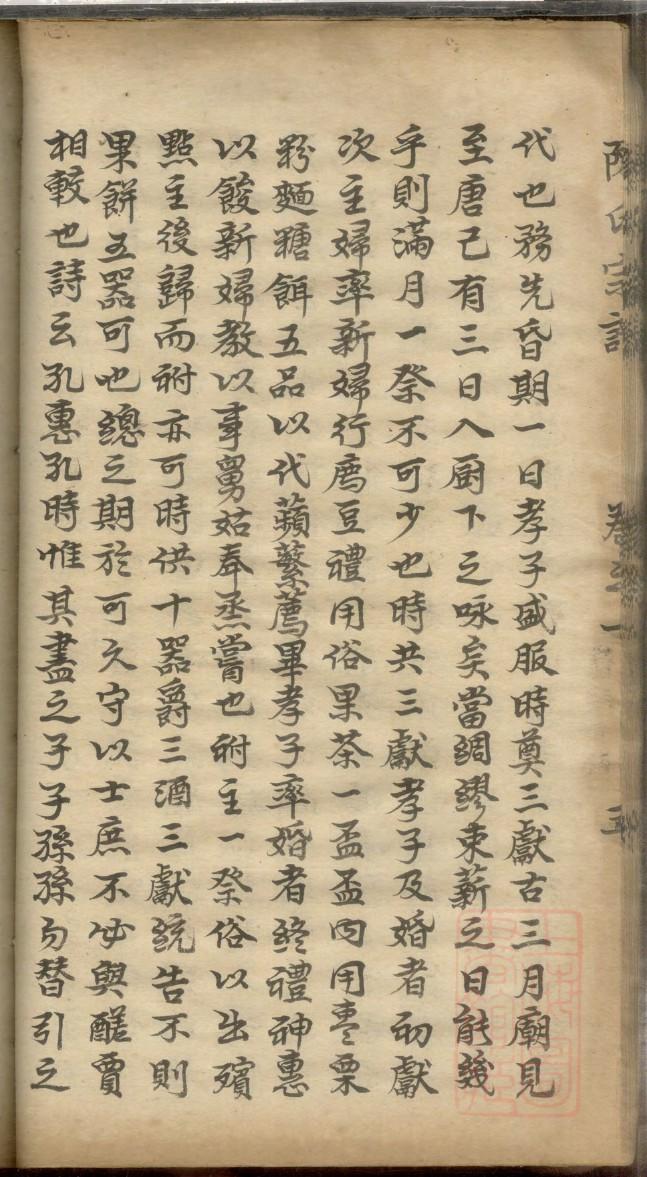 陳氏宗譜 卷之一
代也務先昏期一日孝子盛服時奠三獻古三月廟見
至唐已有三日入厨下之咏矣當綢繆束薪之日能幾
乎則滿月一祭不可少也時共三獻孝子及婚者初獻
次主婦率新婦行薦豆禮用俗果茶一盃盃内用棗栗
粉麵糖餌五品以代蘋蘩薦畢孝子率婚者終禮神惠
以餕新婦教以事舅姑奉烝嘗也祔主一祭俗以出殯
㸃主後歸而祔亦可時供十器爵三酒三獻統告不則
果餅五器可也總之期於可久守以士庶不必與醝賈
相較也詩云孔惠孔時惟其盡之子子孫孫勿替引之